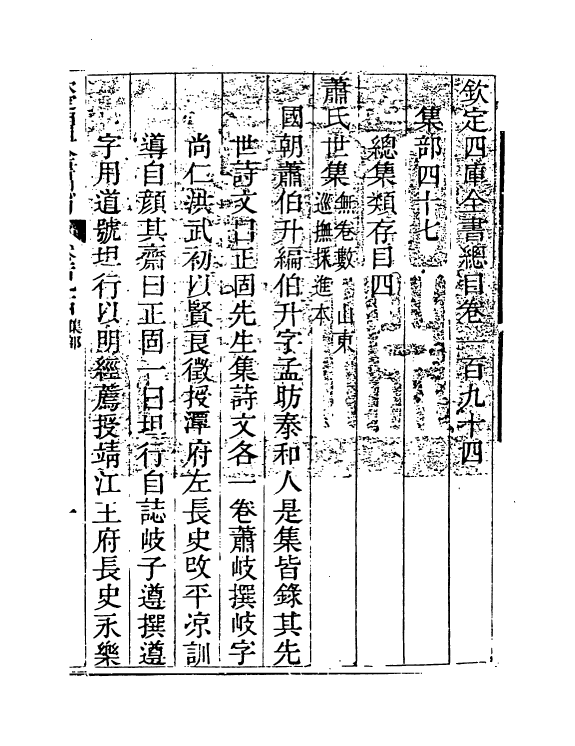 欽定四庫全書總目卷一百九十四
集部四十七
總集類存目四
蕭氏世集無卷數山東
巡撫採進本
國朝蕭伯升編伯升字孟昉泰和人是集皆錄其先
世詩文曰正固先生集詩文各一卷蕭岐撰岐字
尚仁洪武初以賢良徵授潭府左長史改平凉訓
導自顏其齋曰正固一曰坦行自誌岐子遵撰遵
字用道號坦行以明經薦授靖江王府長史永樂
集部
一